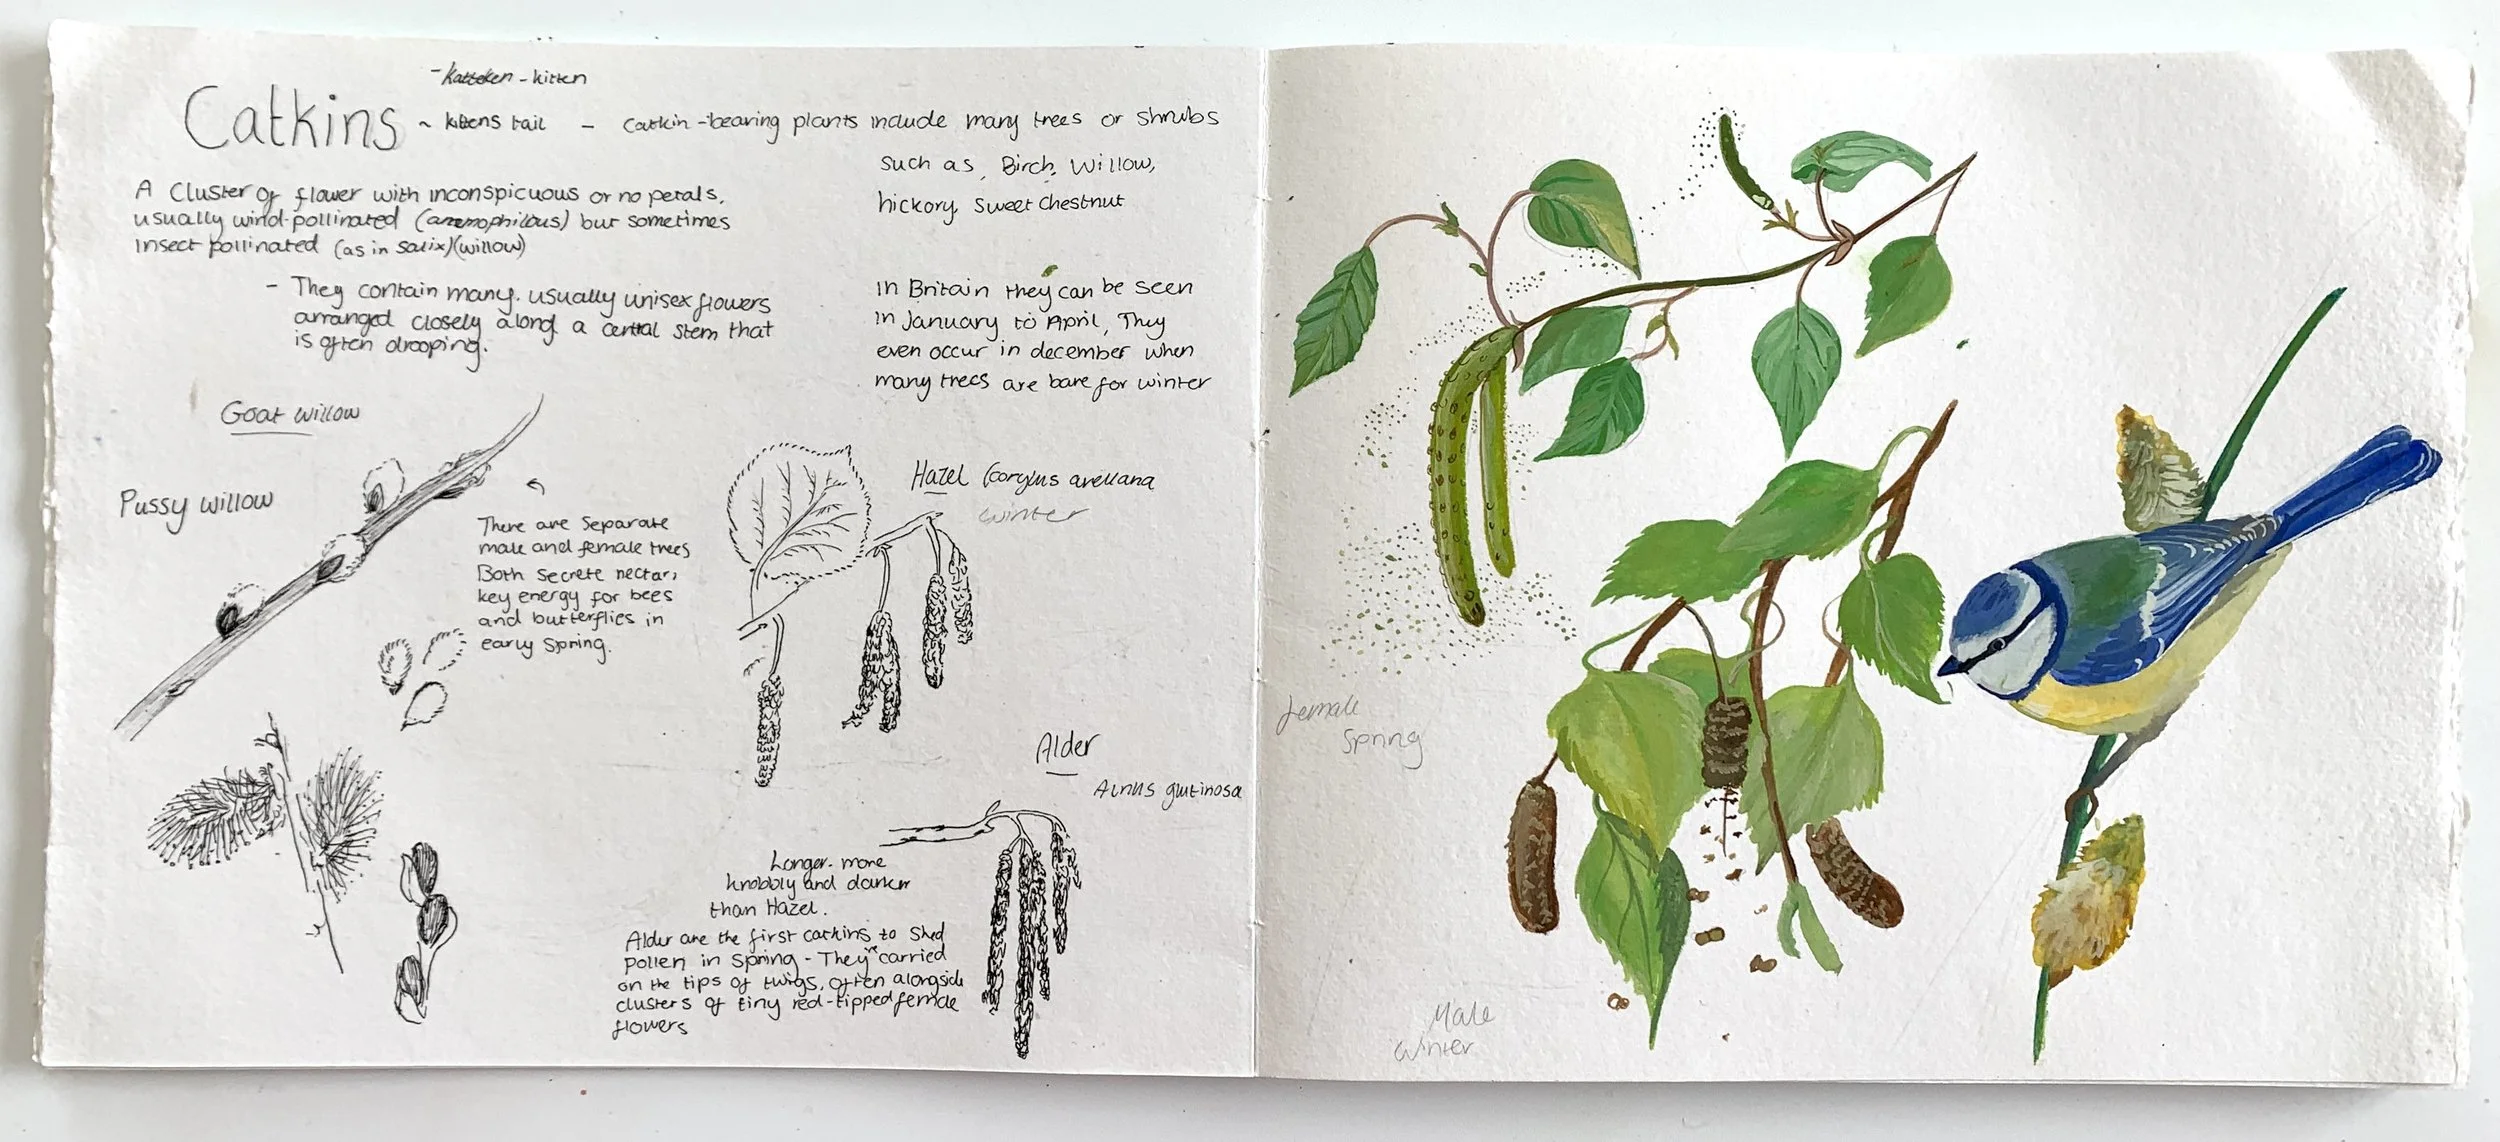 - Katteken - kitten
Catkins ~ kittens tail - Catkin-bearing plants include many trees or shrubs
such as, Birch, Willow,
hickory, sweet chestnut
A Cluster of flower with inconspicuous or no petals,
usually wind-pollinated (anemophilous) but sometimes
insect pollinated (as in salix)(willow)
- They contain many, usually unisex flowers
arranged closely along a central stem that
is often drooping.
In Britain they can be seen
in January to April, They
even occur in december when
many trees are bare for winter
Goat willow
Pussy willow
There are separate
male and female trees
Both secrete nectar,
key energy for bees
and butterflies in
early spring.
Hazel Corylus avellana
winter
Alder
Alnus glutinosa
Longer, more
knobbly and darker
than Hazel.
Alder are the first catkins to shed
pollen in spring - They're carried
on the tips of twigs, often alongside
clusters of tiny red-tipped female
flowers
female
spring
Male
winter